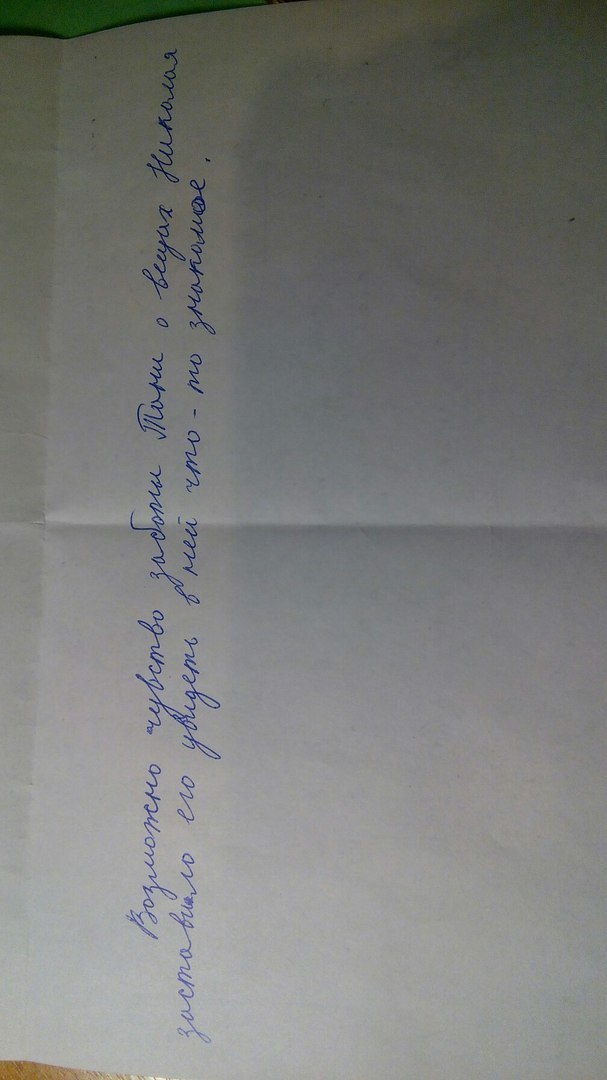 Возможно чувство заботы Тони о вещах Николая
заставило его увидеть в ней что-то знакомое.